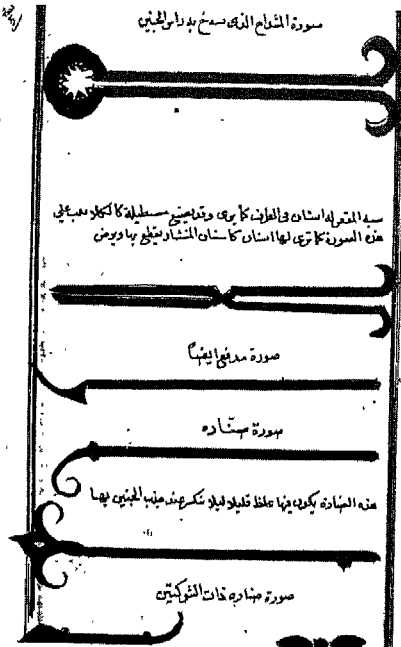 صورة المشداخ الذى يشدخ به راس الجنين
يشبه المقص له اسنان فى الطرف كما ترى وقد يصنع مستطيلة كالكلاليب على
هذه الصورة كما ترى لها اسنان كاسنان المنشار يقطع بها ويرض
صورة مدفع ايضًا
صورة صنّاره
هذه الصنارة يكون فيها غلظ قليلا ليلا تنكسر عند جذب الجنين بها
صورة صناره ذات الشوكتين